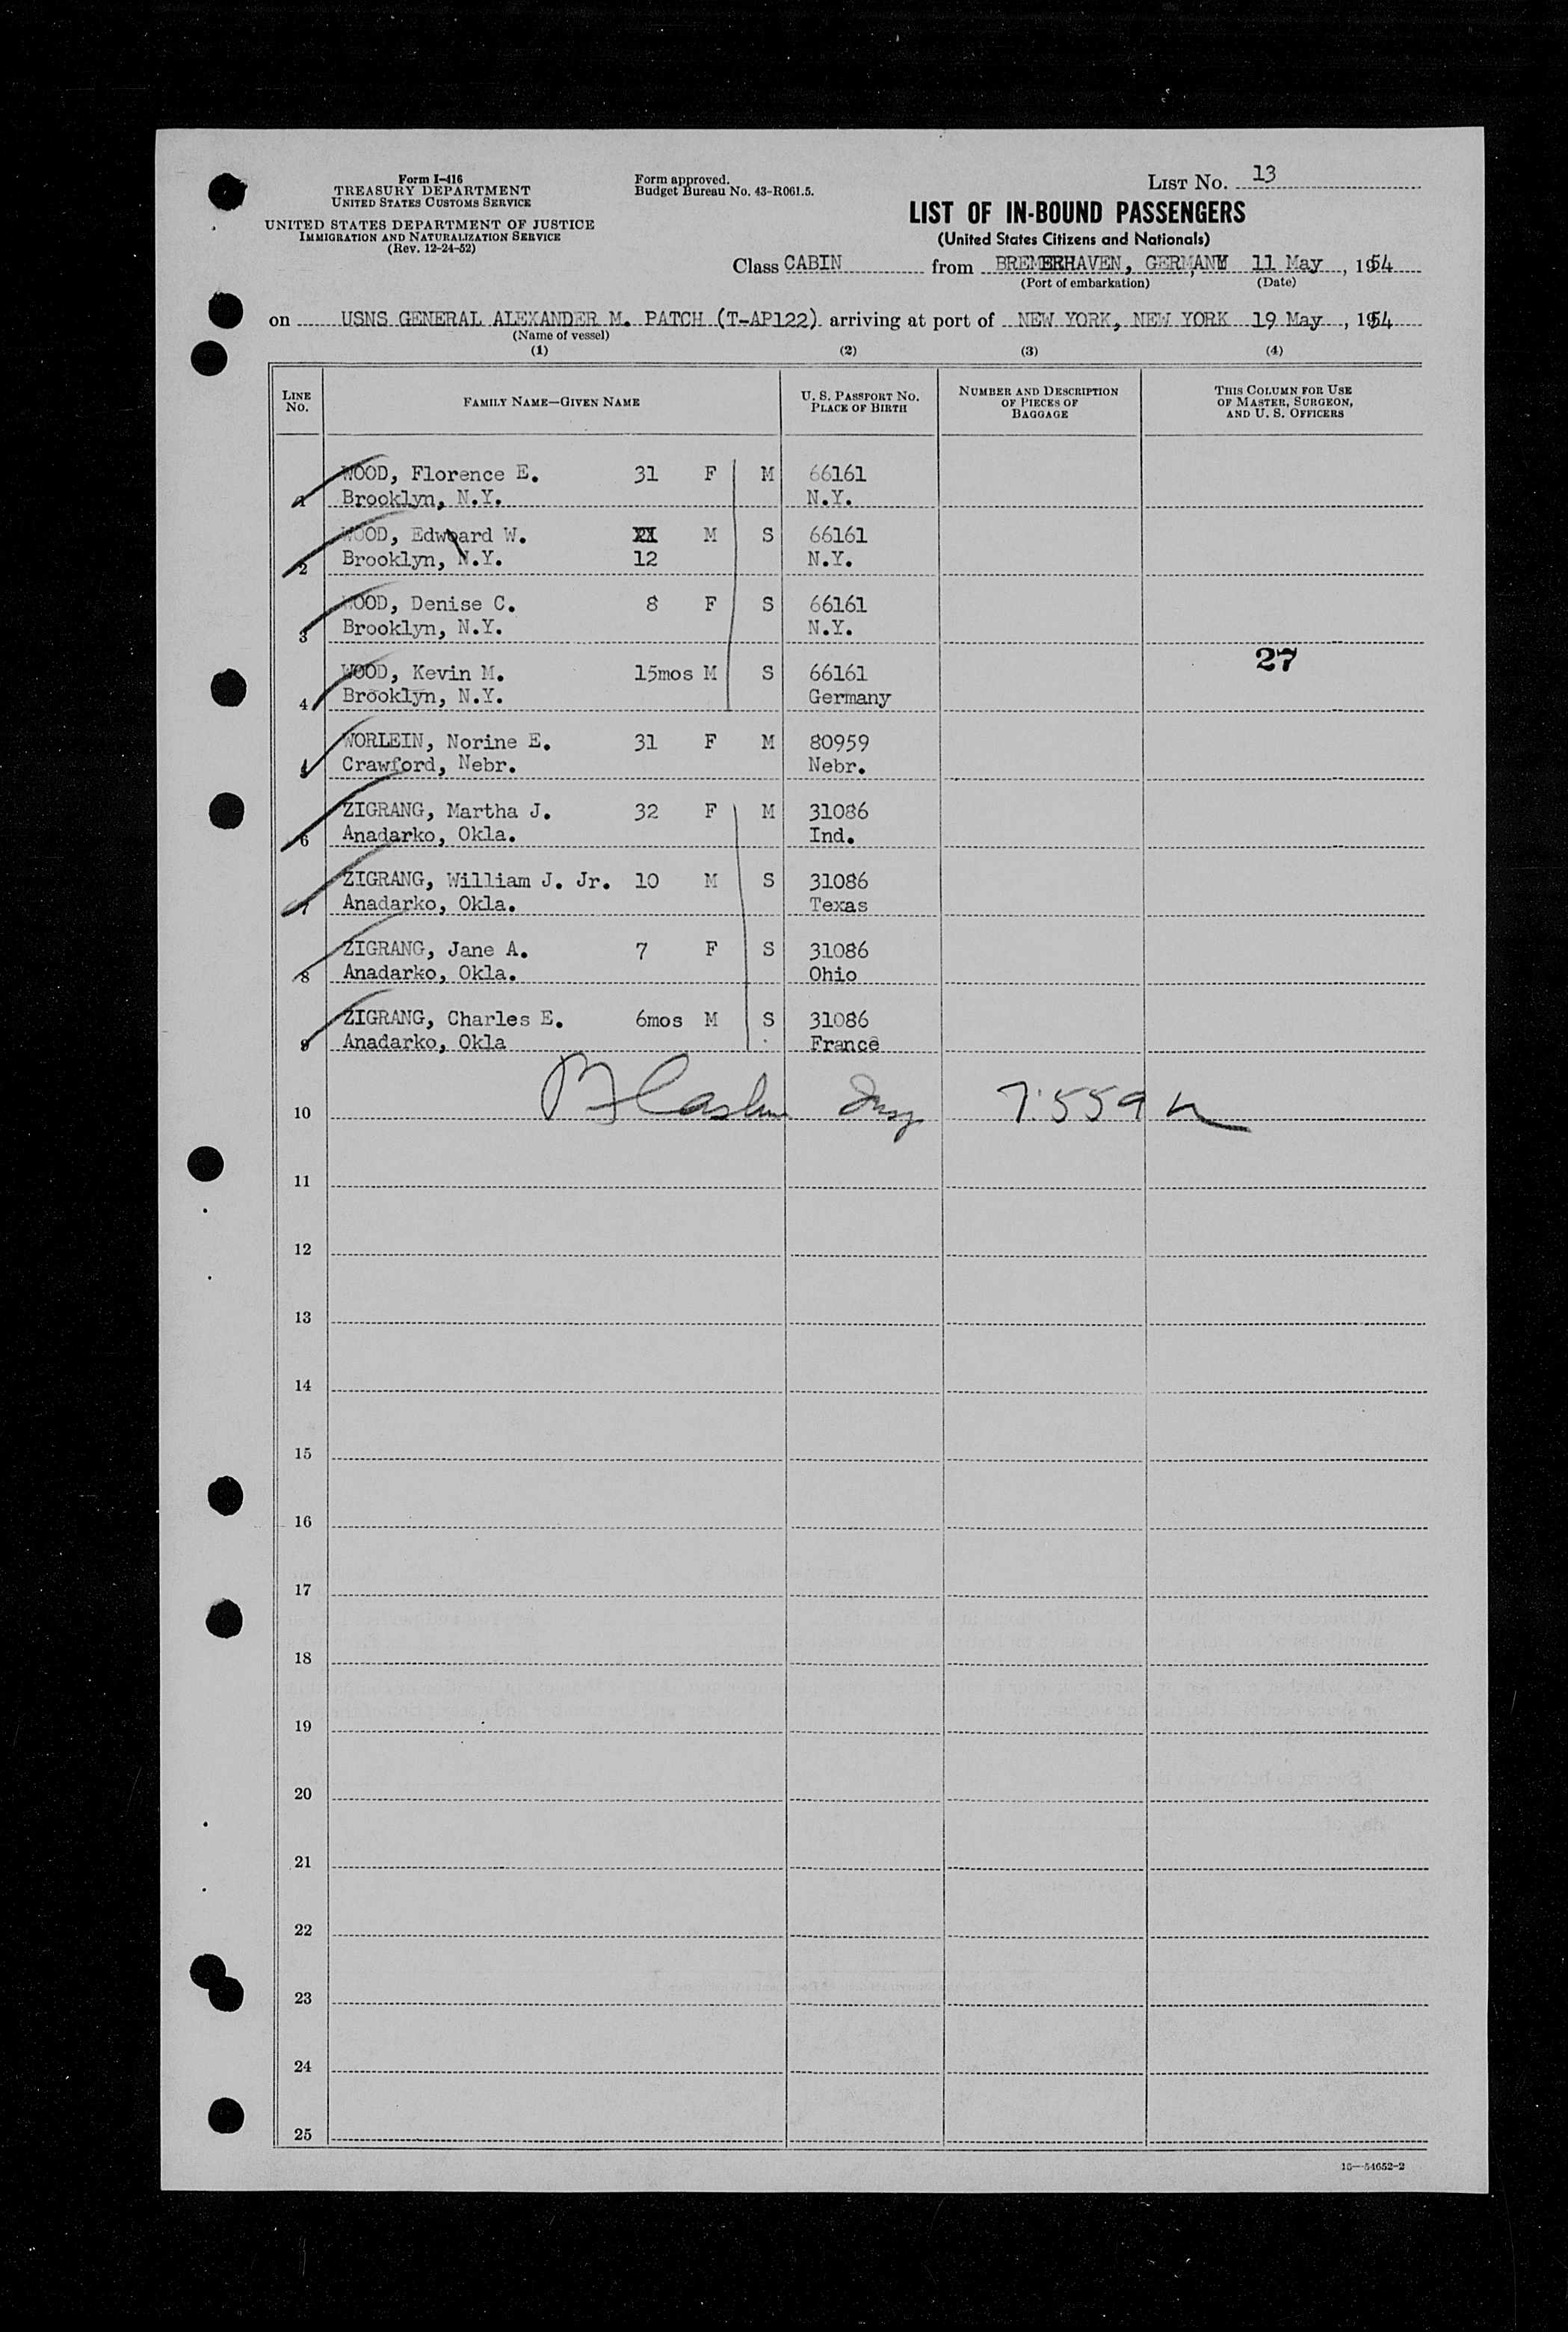 Form I-416
TREASURY DEPARTMENT
UNITED STATES CUSTOMS SERVICE
UNITED STATES DEPARTMENT OF JUSTICE
IMMIGRATION AND NATURALIZATION SERVICE
(Rev. 12-24-52)
Form approved.
Budget Bureau No. 43-R061.5.
LIST NO. 13
LIST OF IN-BOUND PASSENGERS
(United States Citizens and Nationals)
Class CABIN from BREMERHAVEN, GERMANY 11 May, 1954
(Port of embarkation) (Date)
on USNS GENERAL ALEXANDER M. PATCH (T-AP122) arriving at port of NEW YORK, NEW YORK 19 May, 1954
(Name of vessel)
(1) (2) (3) (4)
LINE NO. FAMILY NAME—GIVEN NAME U. S. PASSPORT NO. PLACE OF BIRTH NUMBER AND DESCRIPTION OF PIECES OF BAGGAGE THIS COLUMN FOR USE OF MASTER, SURGEON, AND U. S. OFFICERS
WOOD, Florence E. 31 F M 66161
1 Brooklyn, N.Y. N.Y.
WOOD, Edward W. M S 66161
2 Brooklyn, N.Y. 12 N.Y.
WOOD, Denise C. 8 F S 66161
3 Brooklyn, N.Y. N.Y.
27
WOOD, Kevin M. 15mos M S 66161
4 Brooklyn, N.Y. Germany
WORLEIN, Norine E. 31 F M 80959
5 Crawford, Nebr. Nebr.
ZIGRANG, Martha J. 32 F M 31086
6 Anadarko, Okla. Ind.
ZIGRANG, William J. Jr. 10 M S 31086
7 Anadarko, Okla. Texas
ZIGRANG, Jane A. 7 F S 31086
8 Anadarko, Okla. Ohio
ZIGRANG, Charles E. 6mos M S 31086
9 Anadarko, Okla France
10
11
12
13
14
15
16
17
18
19
20
21
22
23
24
25
16—54652-2